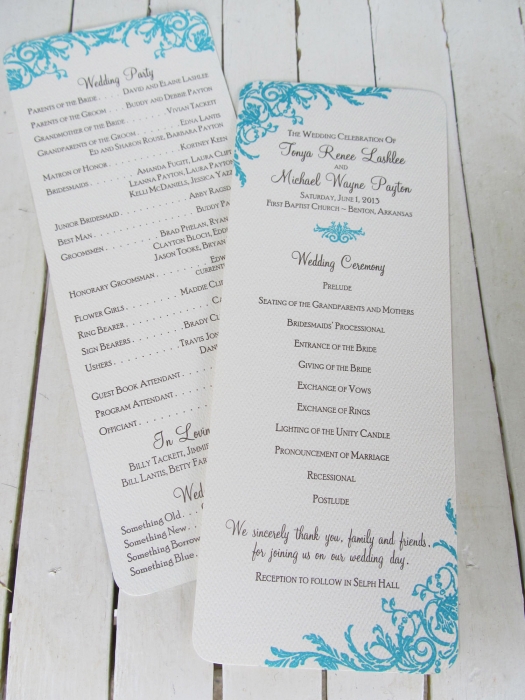 Wedding Party
Parents of the Bride . . . . David and Elaine Lashlee
Parents of the Groom . . . . Buddy and Debbie Payton
Grandmother of the Bride . . . . . . . Vivian Tackett
Grandparents of the Groom . . . . . . . Edna Lantis
Ed and Sharon Rouse, Barbara Payton
Matron of Honor . . . . . . . . . . . Kortney Keen
Bridesmaids . . . . . . . Amanda Fugit, Laura
Leanna Payton, Laura
Kelli McDaniels, Jessica
Junior Bridesmaid . . . . . . . . . Abby
Best Man . . . . . . . . . . . . . . Buddy
Groomsmen . . . . . . . . Brad Phelan, Ryan
Clayton Bloch,
Jason Tooke, Bryan
Honorary Groomsman . . . . . . . .
Flower Girls . . . . . . . . . Maddie
Ring Bearer . . . . . . . . . . . .
Sign Bearers . . . . . . . . . Brady
Ushers . . . . . . . . . . . Travis
Guest Book Attendant . . . . . .
Program Attendant . . . . . . .
Officiant . . . . . . . . . . .
In
Billy Tackett,
Bill Lantis, Betty
Something Old . .
Something New . .
Something Borrow
Something Blue . .
The Wedding Celebration Of
Tonya Renee Lashlee
and
Michael Wayne Payton
Saturday, June 1, 2013
First Baptist Church ~ Benton, Arkansas
Wedding Ceremony
Prelude
Seating of the Grandparents and Mothers
Bridesmaids' Processional
Entrance of the Bride
Giving of the Bride
Exchange of Vows
Exchange of Rings
Lighting of the Unity Candle
Pronouncement of Marriage
Recessional
Postlude
We sincerely thank you, family and friends,
for joining us on our wedding day.
Reception to follow in Selph Hall